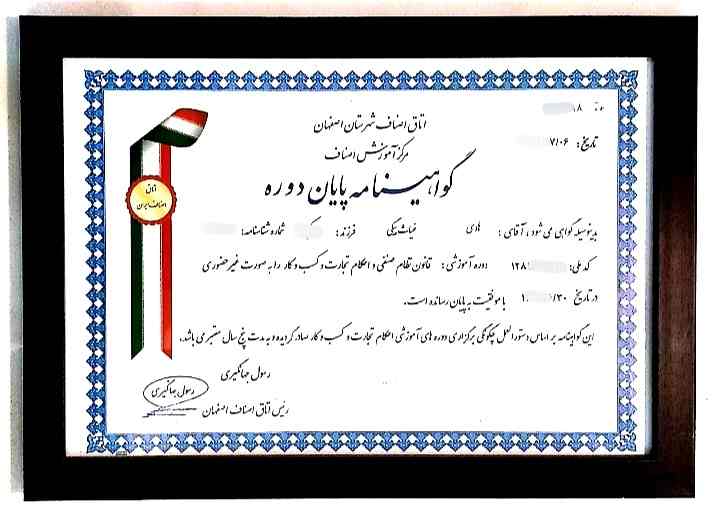 ۱۸
اتاق اصناف شهرستان اصفهان
تاریخ: ۷/۰۶
مرکز آموزش اصناف
گواهینامه پایان دوره
اتاق
اصناف ایران
بدینوسیله گواهی می شود، آقای: هادی غیاث بیکی فرزند: شماره شناسنامه:
کد ملی: ۱۲۸ دوره آموزشی: قانون نظام صنفی و احکام تجارت و کسب و کار را به صورت غیر حضوری
در تاریخ ۱/۳۰ با موفقیت به پایان رسانده است.
این گواهینامه بر اساس دستورالعمل چگونگی برگزاری دوره های آموزشی احکام تجارت و کسب و کار صادر گردیده و به مدت پنج سال معتبر می باشد.
رسول جهانگیری
رسول جهانگیری
رئیس اتاق اصناف اصفهان